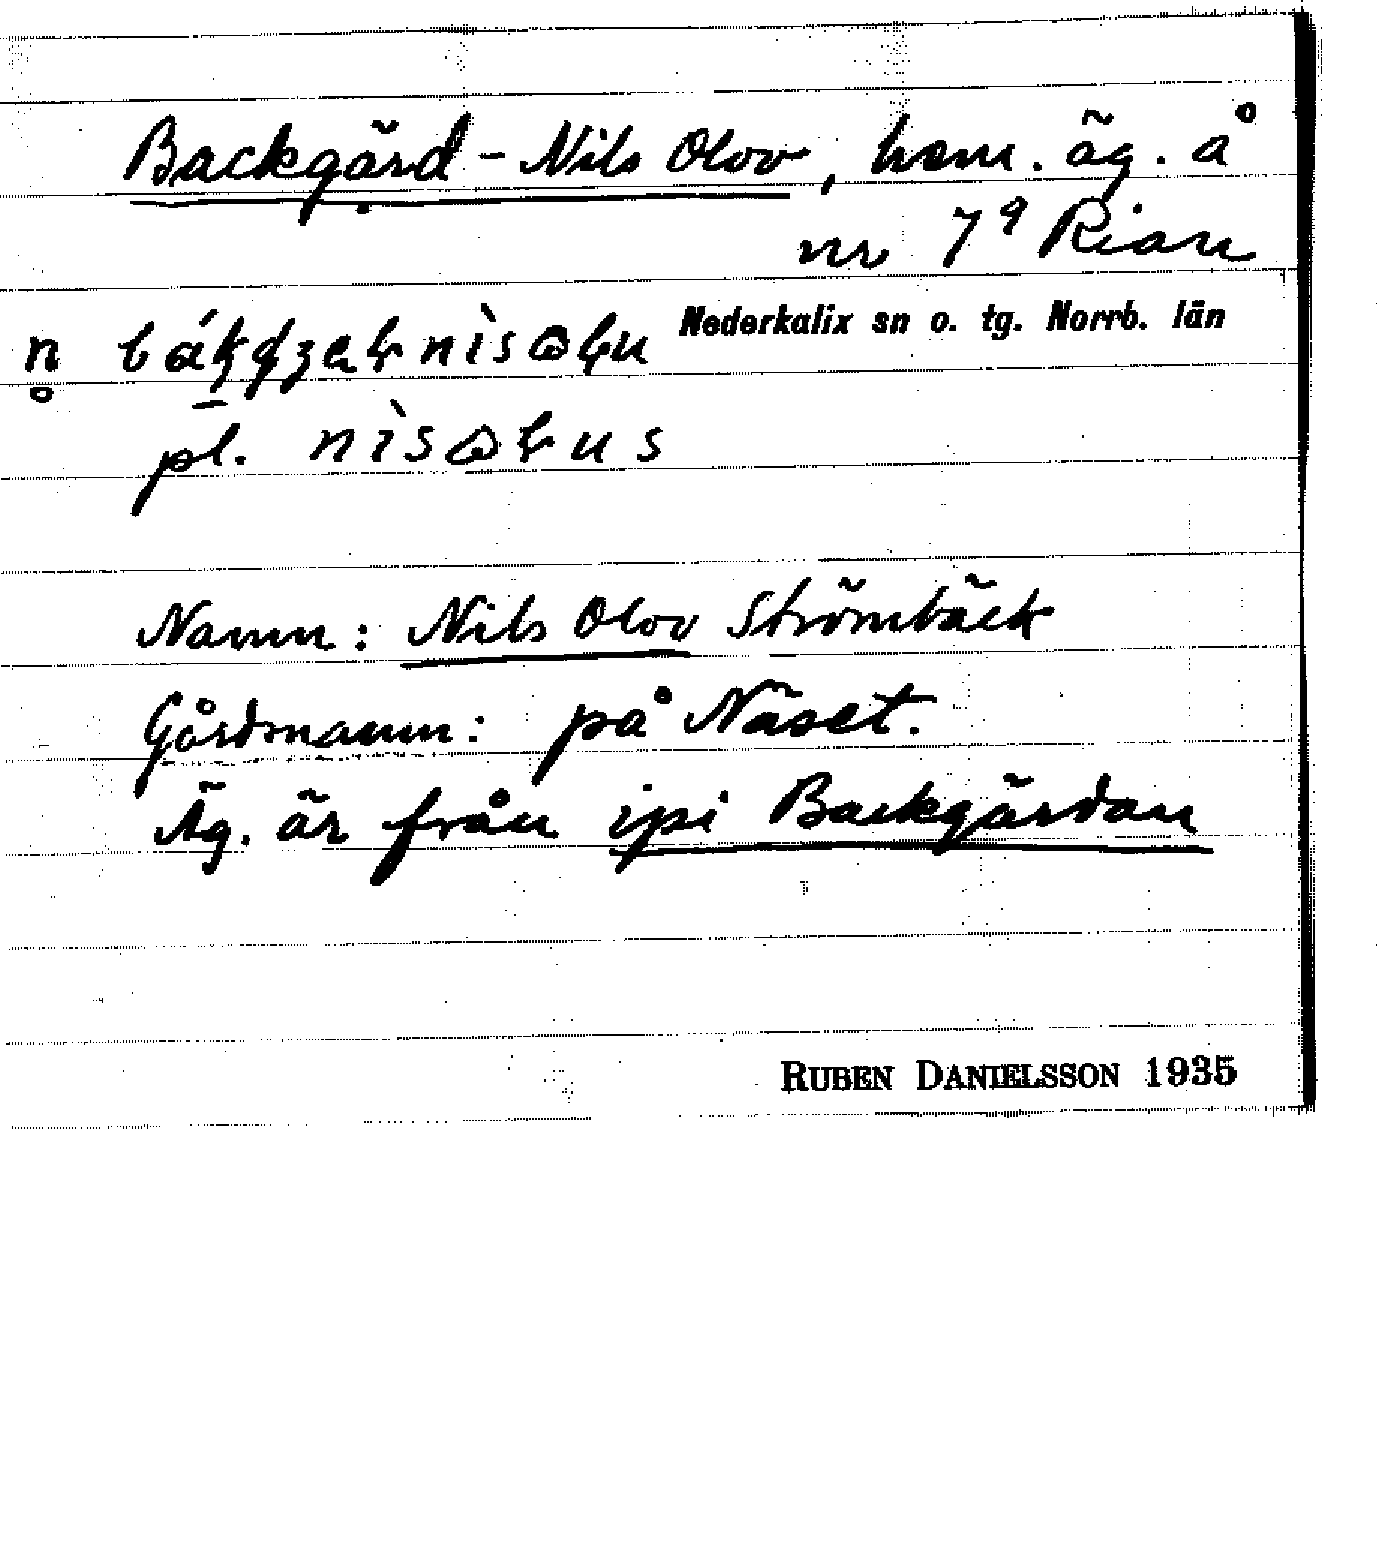 Backgård-Nils Olov, hem. äg. å
nr 7⁹ Rian
Nederkalix sn o. tg. Norrb. län
pl.
Namn: Nils Olov Strömbäck
Gårdsnamn: på Näset.
Äg. är från ipi Backgärdan
RUBEN DANIELSSON 1935